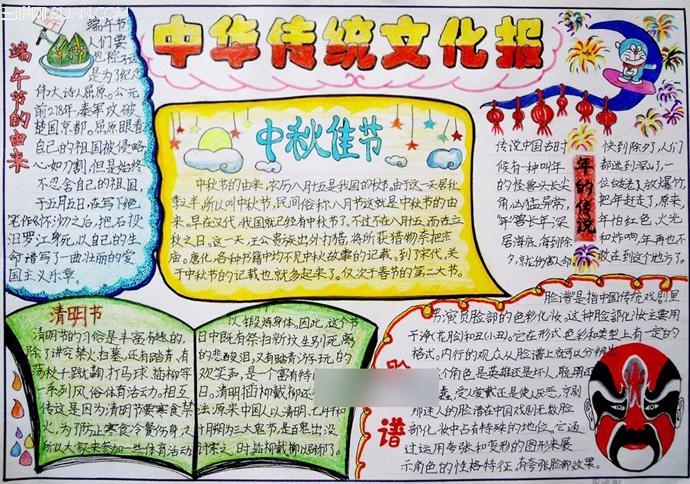 中华传统文化报
端午节的由来
端午节
人们要
是为了纪念
伟大诗人屈原。公元
前278年,秦军攻破
楚国京都。屈原眼看
自己的祖国被侵略
心如刀割,但是始终
不忍舍自己的祖国
于五月五日,在写下绝
笔作《怀沙》之后,抱石投
汨罗江身死,以自己的生
命谱写了一曲壮丽的爱
国主义乐章。
中秋佳节
中秋节的由来,农历八月十五是我国的
所以叫中秋节,民间俗称八月节这就是中秋节的由
来。早在汉代,我国就已经有中秋节了,不过不在八月十五,而在立
秋之日,这一天,王公贵族出外打猎,将所获猎物奈把宗
庙。唐化,各种书籍中均不见中秋故事的记载,到了宋代,关
于中秋节的记载也就多起来了。仅次于春节的第二大节。
年的传说
传说中国古时
候有一种叫年
的怪兽头长尖
角凶猛异常,
年兽长年深
居海底,每到除
夕,
快到除夕人们
都逃到深山,一
位
把年赶走了,原来,
年怕红色,火光
和炸响,年再也不
敢到这个地方了。
清明节
清明节的习俗是丰富有趣的,
除了讲究禁火扫墓,还有踏青,有
荡秋千蹴鞠打马球插柳等
一系列风俗体育活动。相互
传这是因为清明节要寒食禁
火,为了防止寒食冷餐伤身,又
所以大家来参加一些体育活动
以锻炼身体,因此,这个节
日中既有祭扫新坟生别死离
的悲酸泪,又有踏青游玩的
欢笑声,是一个富有特
日。清明插柳戴柳还
法:原来中国人以清明、七月和十
月朔为三大鬼节,是百鬼出没
讨索之时,插柳戴柳以辟邪了。
脸谱
脸谱是指中国传戏剧里
男演员脸部的色彩化妆,这种脸部化妆主要用
于净(花脸)和丑(小丑),它在形式色彩和类型上有一定的
格式。内行的观众从脸谱上就可以分辨出
个角色是英雄还是坏人,聪明
受人爱戴还是使人厌恶,京剧
那迷人的脸谱在中国戏剧无数脸
部化妆中占有特殊的地位,它通
过运用夸张和变形的图形来展
示角色的性格特征,有夸张脸部效果。